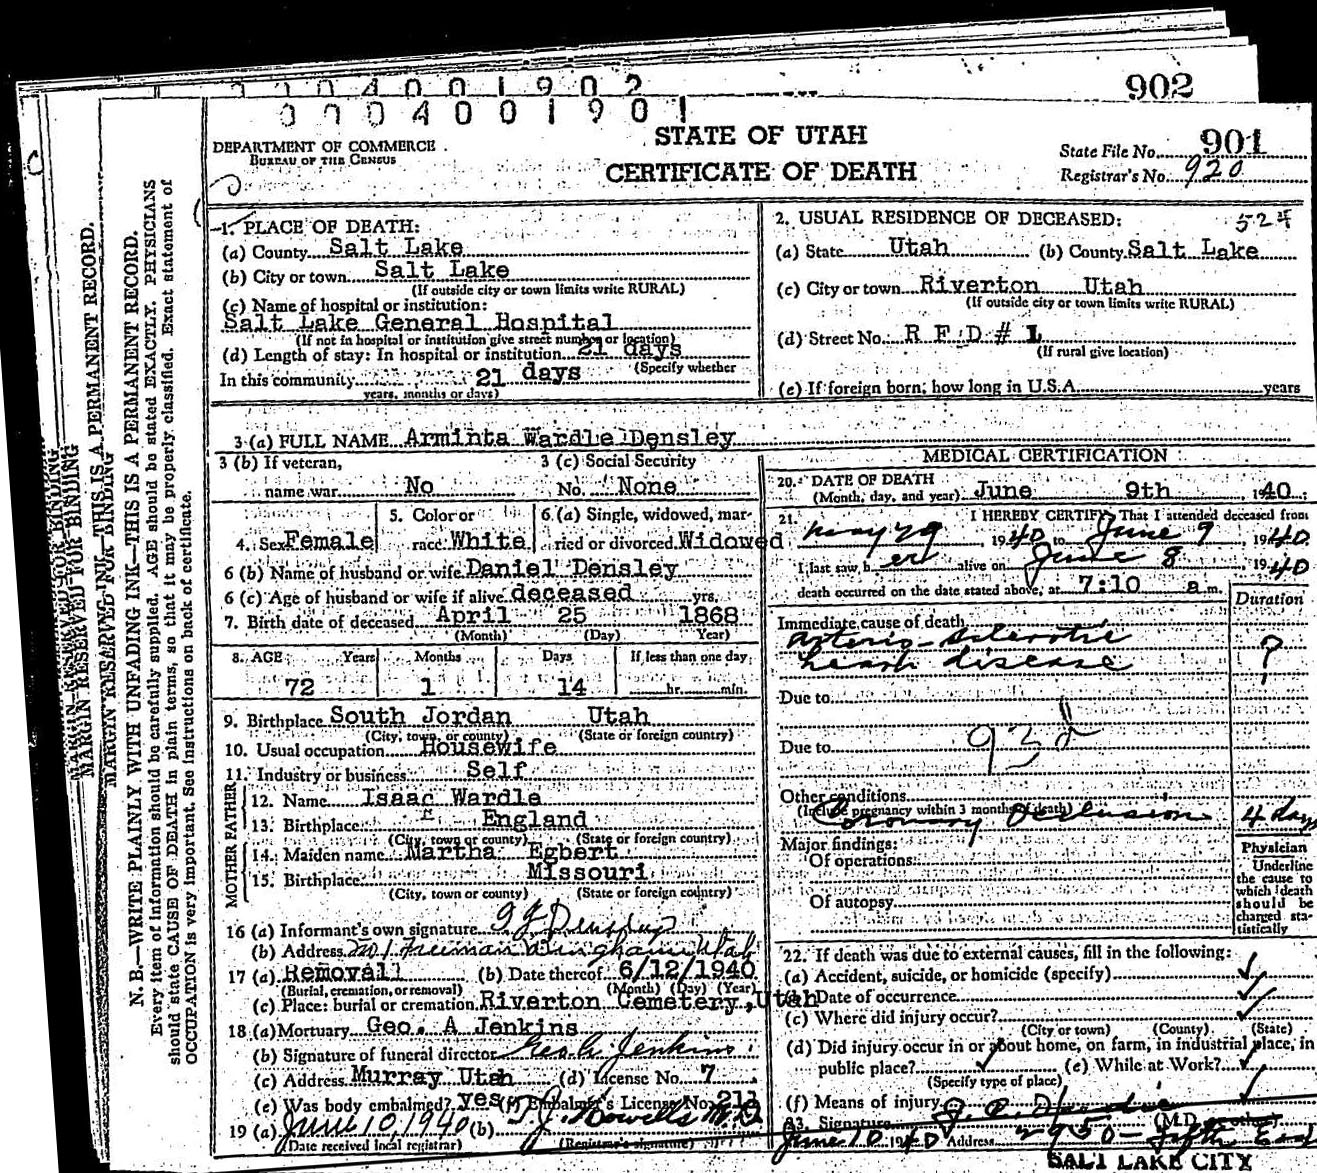 0 0 0 4 0 0 1 9 0 2
902
0 0 0 4 0 0 1 9 0 1
DEPARTMENT OF COMMERCE
BUREAU OF THE CENSUS
STATE OF UTAH
CERTIFICATE OF DEATH
State File No. 901
Registrar's No. 920
MARGIN RESERVED FOR BINDING
MARGIN RESERVED FOR BINDING
INK—THIS IS A PERMANENT RECORD.
N. B.—WRITE PLAINLY WITH UNFADING INK—THIS IS A PERMANENT RECORD.
Every item of information should be carefully supplied. AGE should be stated EXACTLY. PHYSICIANS
should state CAUSE OF DEATH in plain terms, so that it may be properly classified. Exact statement of
OCCUPATION is very important. See instructions on back of certificate.
1. PLACE OF DEATH:
(a) County Salt Lake
(b) City or town Salt Lake
(If outside city or town limits write RURAL)
(c) Name of hospital or institution:
Salt Lake General Hospital
(If not in hospital or institution give street number or location)
(d) Length of stay: In hospital or institution 21 days
(Specify whether
In this community 21 days
years, months or days)
2. USUAL RESIDENCE OF DECEASED: 524
(a) State Utah (b) County Salt Lake
(c) City or town Riverton Utah
(If outside city or town limits write RURAL)
(d) Street No. R F D # 1
(If rural give location)
(e) If foreign born, how long in U.S.A. years
3 (a) FULL NAME Arminta Wardle Densley
3 (b) If veteran, 3 (c) Social Security
name war No No. None
4. Sex Female 5. Color or race White 6. (a) Single, widowed, married or divorced Widowed
6 (b) Name of husband or wife Daniel Densley
6 (c) Age of husband or wife if alive deceased yrs.
7. Birth date of deceased April 25 1868
(Month) (Day) Year)
8. AGE Years Months Days If less than one day
72 1 14 hr. min.
9. Birthplace South Jordan Utah
(City, town, or county) (State or foreign country)
10. Usual occupation Housewife
11. Industry or business Self
FATHER
12. Name Isaac Wardle
13. Birthplace England
(City, town or county) (State or foreign country)
MOTHER
14. Maiden name Martha Egbert
15. Birthplace Missouri
(City, town or county) (State or foreign country)
16 (a) Informant's own signature
(b) Address Freeman Bingham Utah
17 (a) Removall (b) Date thereof 6/12/1940
(Burial, cremation, or removal) (Month) (Day) (Year)
(c) Place: burial or cremation Riverton Cemetery, Utah
18 (a) Mortuary Geo. A Jenkins
(b) Signature of funeral director Geo A Jenkins
(c) Address Murray Utah (d) License No. 7
(e) Was body embalmed? yes (f) Embalmer's License No. 211
19 (a) June 10, 1940 (b) T. J. Howells M. D.
(Date received local registrar) (Registrar's signature)
MEDICAL CERTIFICATION
20. DATE OF DEATH
(Month, day, and year) June 9th, 1940;
21. I HEREBY CERTIFY, That I attended deceased from
May 29 1940 to June 9, 1940.
I last saw her alive on June 8, 1940
death occurred on the date stated above, at 7:10 a m.
Duration
Immediate cause of death
arterio sclerotic
heart disease ?
Due to
93d
Due to
Other conditions
(Include pregnancy within 3 months of death)
Coronary Occlusion 4 days
Major findings:
Of operations:
Of autopsy
Physician
Underline
the cause to
which death
should be
charged sta-
tistically
22. If death was due to external causes, fill in the following:
(a) Accident, suicide, or homicide (specify)
Date of occurrence
(c) Where did injury occur?
(City or town) (County) (State)
(d) Did injury occur in or about home, on farm, in industrial place, in
public place? (e) While at Work?
(Specify type of place)
(f) Means of injury
23. Signature (M.D. or other)
June 10 1940 Address 2950 - Fifth East
SALT LAKE CITY